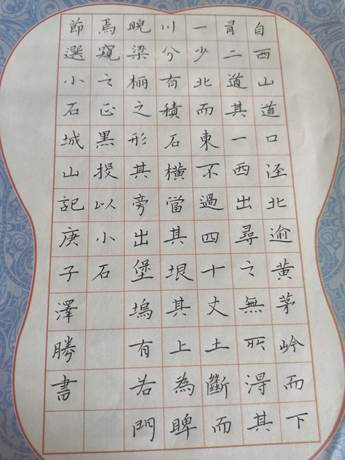 自西山道口泾北逾黃茅岭而下
有二道其一西出尋之無所得其
一少北而東不過四十丈土斷而
川分有積石橫當其垠其上為睥
睨梁欐之形其旁出堡塢有若門
焉窺之正黑投以小石
節選小石城山記庚子澤勝書